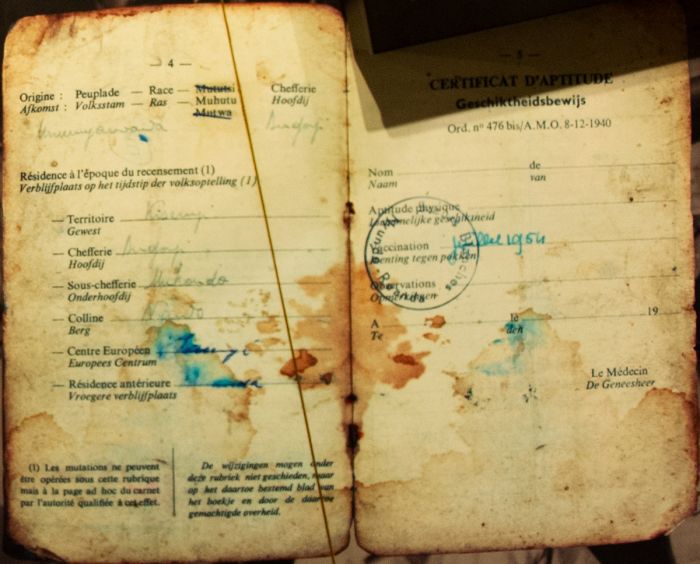 — 4 —
Origine : Peuplade — Race — Mututsi Chefferie
Afkomst : Volksstam — Ras — Muhutu Hoofdij
Mutwa
Résidence à l'époque du recensement (1)
Verblijfplaats op het tijdstip der volksoptelling (1)
— Territoire
Gewest
— Chefferie
Hoofdij
— Sous-chefferie
Onderhoofdij
— Colline
Berg
— Centre Européen
Europees Centrum
— Résidence antérieure
Vroegere verblijfplaats
(1) Les mutations ne peuvent
être opérées sous cette rubrique
mais à la page ad hoc du carnet
par l'autorité qualifiée à cet effet.
De wijzigingen mogen onder
deze rubriek niet geschieden, maar
op het daartoe bestemd blad van
het boekje en door de daartoe
gemachtigde overheid.
— 5 —
CERTIFICAT D'APTITUDE
Geschiktheidsbewijs
Ord. nº 476 bis/A.M.O. 8-12-1940
Nom de
Naam van
Aptitude physique
Lichamelijke geschiktheid
Vaccination 1954
Inenting tegen pokken
Observations
Opmerkingen
A le 19
Te den
Le Médecin
De Geneesheer